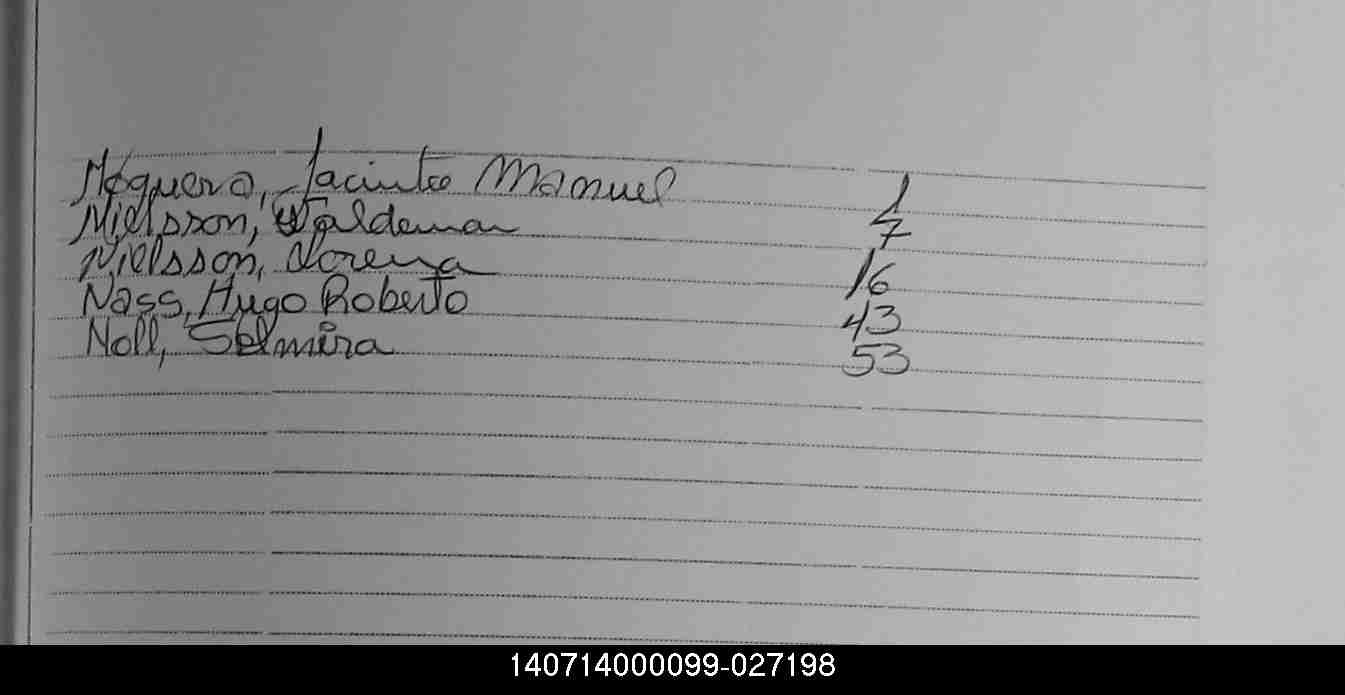 Noguera, Jacinto Manuel 1
Nielsson, Waldemar 7
Nielsson, Lorena 16
Nass, Hugo Roberto 43
Noll, Selmira 53
140714000099-027198